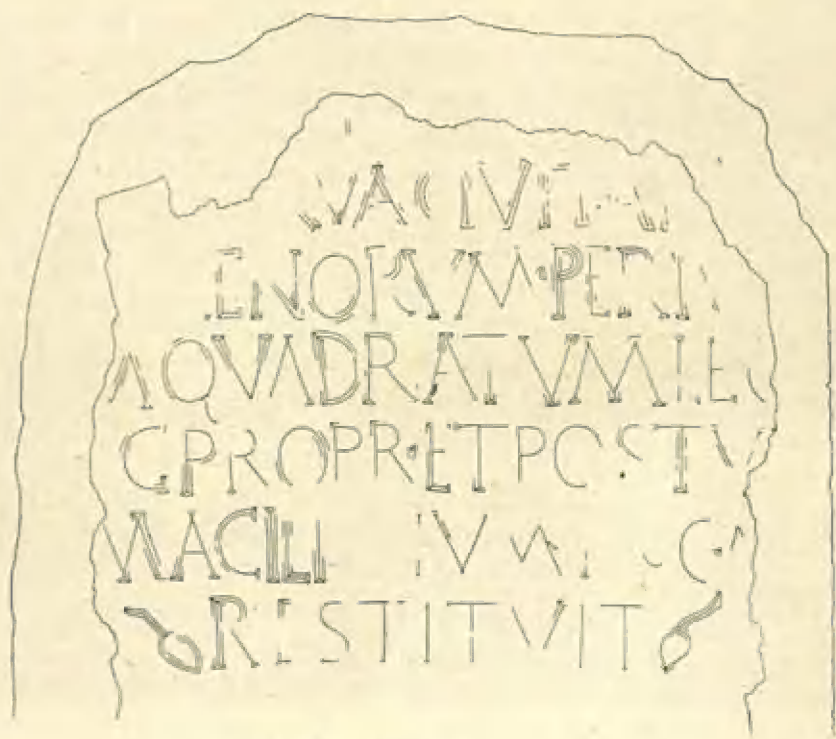 VACIVITA
ENORVM·PER
AQVADRATVMLE
GPROPR·ETPOSTV
MACILI
RESTITVIT